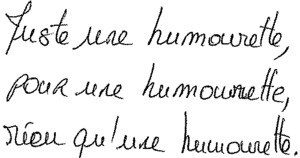 Juste une humourette,
pour une humourette,
rien qu'une humourette.